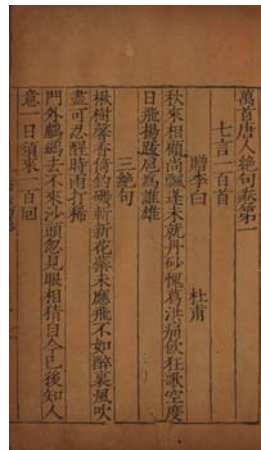 萬首唐人絕句卷第一
七言一百首
贈李白 杜甫
秋來相顧尚飄蓬未就丹砂愧葛洪痛飲狂歌空度
日飛揚跋扈爲誰雄
三絕句
楸樹馨香倚釣磯斬新花蘂未應飛不如醉裏風吹
盡可忍醒時雨打稀
門外鸕鷀去不來沙頭忽見眼相猜自今已後知人
意一日須來一百回